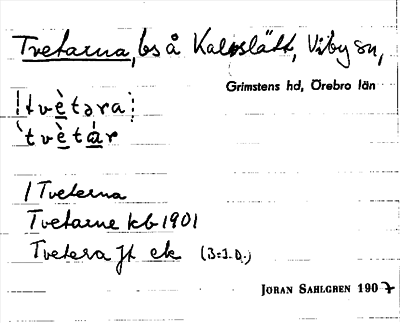 Tvetarna, bs å Kalvslätt, Viby sn,
Grimstens hd, Örebro län
tvètəra
tvètár
/ Tveterna
Tvetarne kb 1901
Tvetera Jt ek (3=J.Ö.)
JÖRAN SAHLGREN 1907